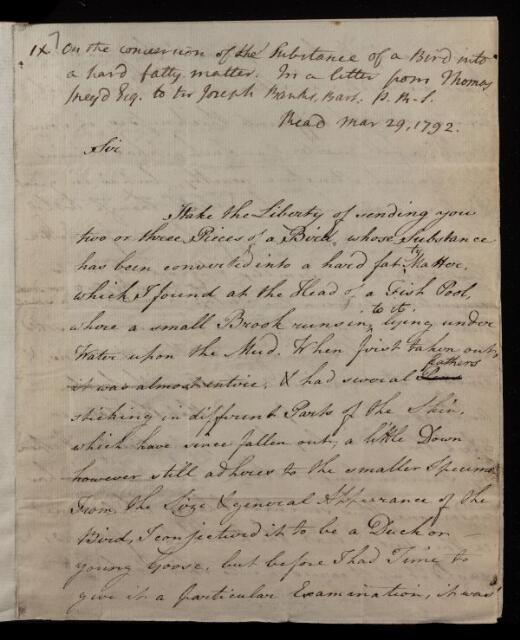 IX. On the conversion of the Substance of a Bird into
a hard fatty matter. In a letter from Thomas
Sneyd Esq. to Sir Joseph Banks, Bart. P.R.S.
Read Mar 29, 1792.
Sir
I take the Liberty of sending you
two or three Pieces of a Bird, whose Substance
has been converted into a hard fatty Matter,
which I found at the Head of a Fish Pool,
to it
where a small Brook runs in, lying under
Water upon the Mud. When first taken out,
feathers
it was almost entire, & had several
sticking in different Parts of the Skin,
which have since fallen out, a little Down
however still adheres to the smaller Specimen
From the Size & general Appearance of the
Bird, I conjectured it to be a Duck or
young Goose, but before I had Time to
give it a particular Examination, it was